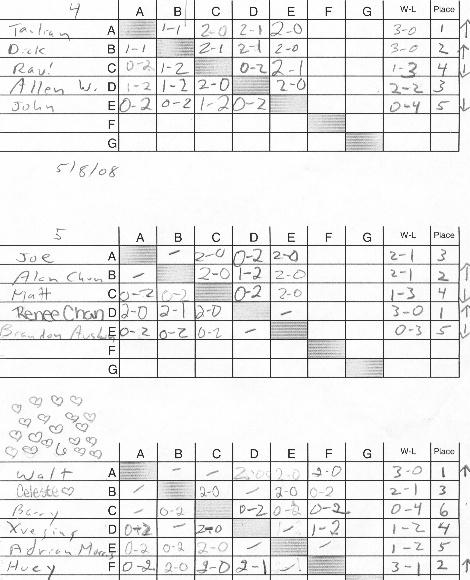 4 A B C D E F G W-L Place
A 1-1 2-0 2-1 2-0 3-0 1 ↑
Dick B 1-1 2-1 2-1 2-0 3-0 2 ↑
Raul C 0-2 1-2 0-2 2-1 1-3 4 ↓
Allen W. D 1-2 1-2 2-0 2-0 2-2 3
John E 0-2 0-2 1-2 0-2 0-4 5 ↓
F
G
5/8/08
5 A B C D E F G W-L Place
Joe A - 2-0 0-2 2-0 2-1 3
Alan Chun B - 2-0 1-2 2-0 2-1 2 ↑
Matt C 0-2 0-2 0-2 2-0 1-3 4 ↓
Renee Chan D 2-0 2-1 2-0 - 3-0 1 ↑
Brandon E 0-2 0-2 0-2 - 0-3 5 ↓
F
G
6 A B C D E F G W-L Place
Walt A - - 2-0 2-0 2-0 3-0 1 ↑
Celeste ♡ B - 2-0 - 2-0 0-2 2-1 3
Barry C - 0-2 0-2 0-2 0-2 0-4 6
D 0-2 - 2-0 - 1-2 1-2 4
Adrian E 0-2 0-2 2-0 - - 1-2 5
Huey F 0-2 2-0 2-0 2-1 - 3-1 2 ↑